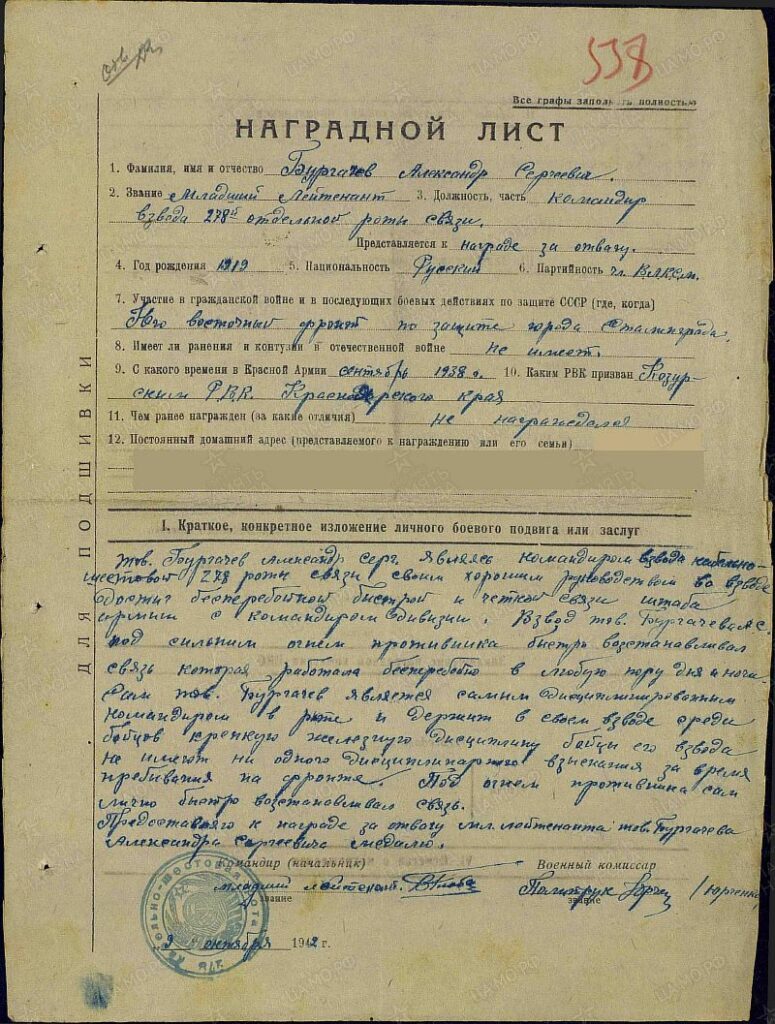 538
Все графы заполнять полностью
НАГРАДНОЙ ЛИСТ
1. Фамилия, имя и отчество Бургачев Александр Сергеевич.
2. Звание Младший Лейтенант 3. Должность, часть командир
взвода 278й отдельной роты связи.
Представляется к награде за отвагу.
4. Год рождения 1919 5. Национальность Русский 6. Партийность чл. ВЛКСМ.
7. Участие в гражданской войне и в последующих боевых действиях по защите СССР (где, когда)
Юго восточный фронт по защите города Сталинграда.
8. Имеет ли ранения и контузии в отечественной войне не имеет.
9. С какого времени в Красной Армии сентябрь 1938 г. 10. Каким РВК призван
РВК. Краснодарского края
11. Чем ранее награжден (за какие отличия) не награждался
12. Постоянный домашний адрес (представляемого к награждению или его семьи)
ДЛЯ ПОДШИВКИ
I. Краткое, конкретное изложение личного боевого подвига или заслуг
тов. Бургачев Александр Серг. являясь командиром взвода кабельно-
шестовой 278 роты связи своим хорошим руководством во взводе
достиг бесперебойной быстрой и четкой связи штаба
армии с командиром дивизии. Взвод тов. Бургачева А.С.
под сильным огнем противника быстро восстанавливал
связь которая работала бесперебойно в любую пору дня и ночи.
Сам тов. Бургачев является самым дисциплинированным
командиром в роте и держит в своем взводе среди
бойцов крепкую железную дисциплину бойцы его взвода
не имеют ни одного дисциплинарного взыскания за время
пребывания на фронте. Под огнем противника сам
лично быстро восстанавливал связь.
к награде за отвагу мл. лейтенанта тов. Бургачева
Александра Сергеевича медалью.
Командир (начальник) Военный комиссар
младший лейтенант Политрук /Юрченко
звание звание
Кабельно-шестовая рота
278
9 сентября 1942 г.